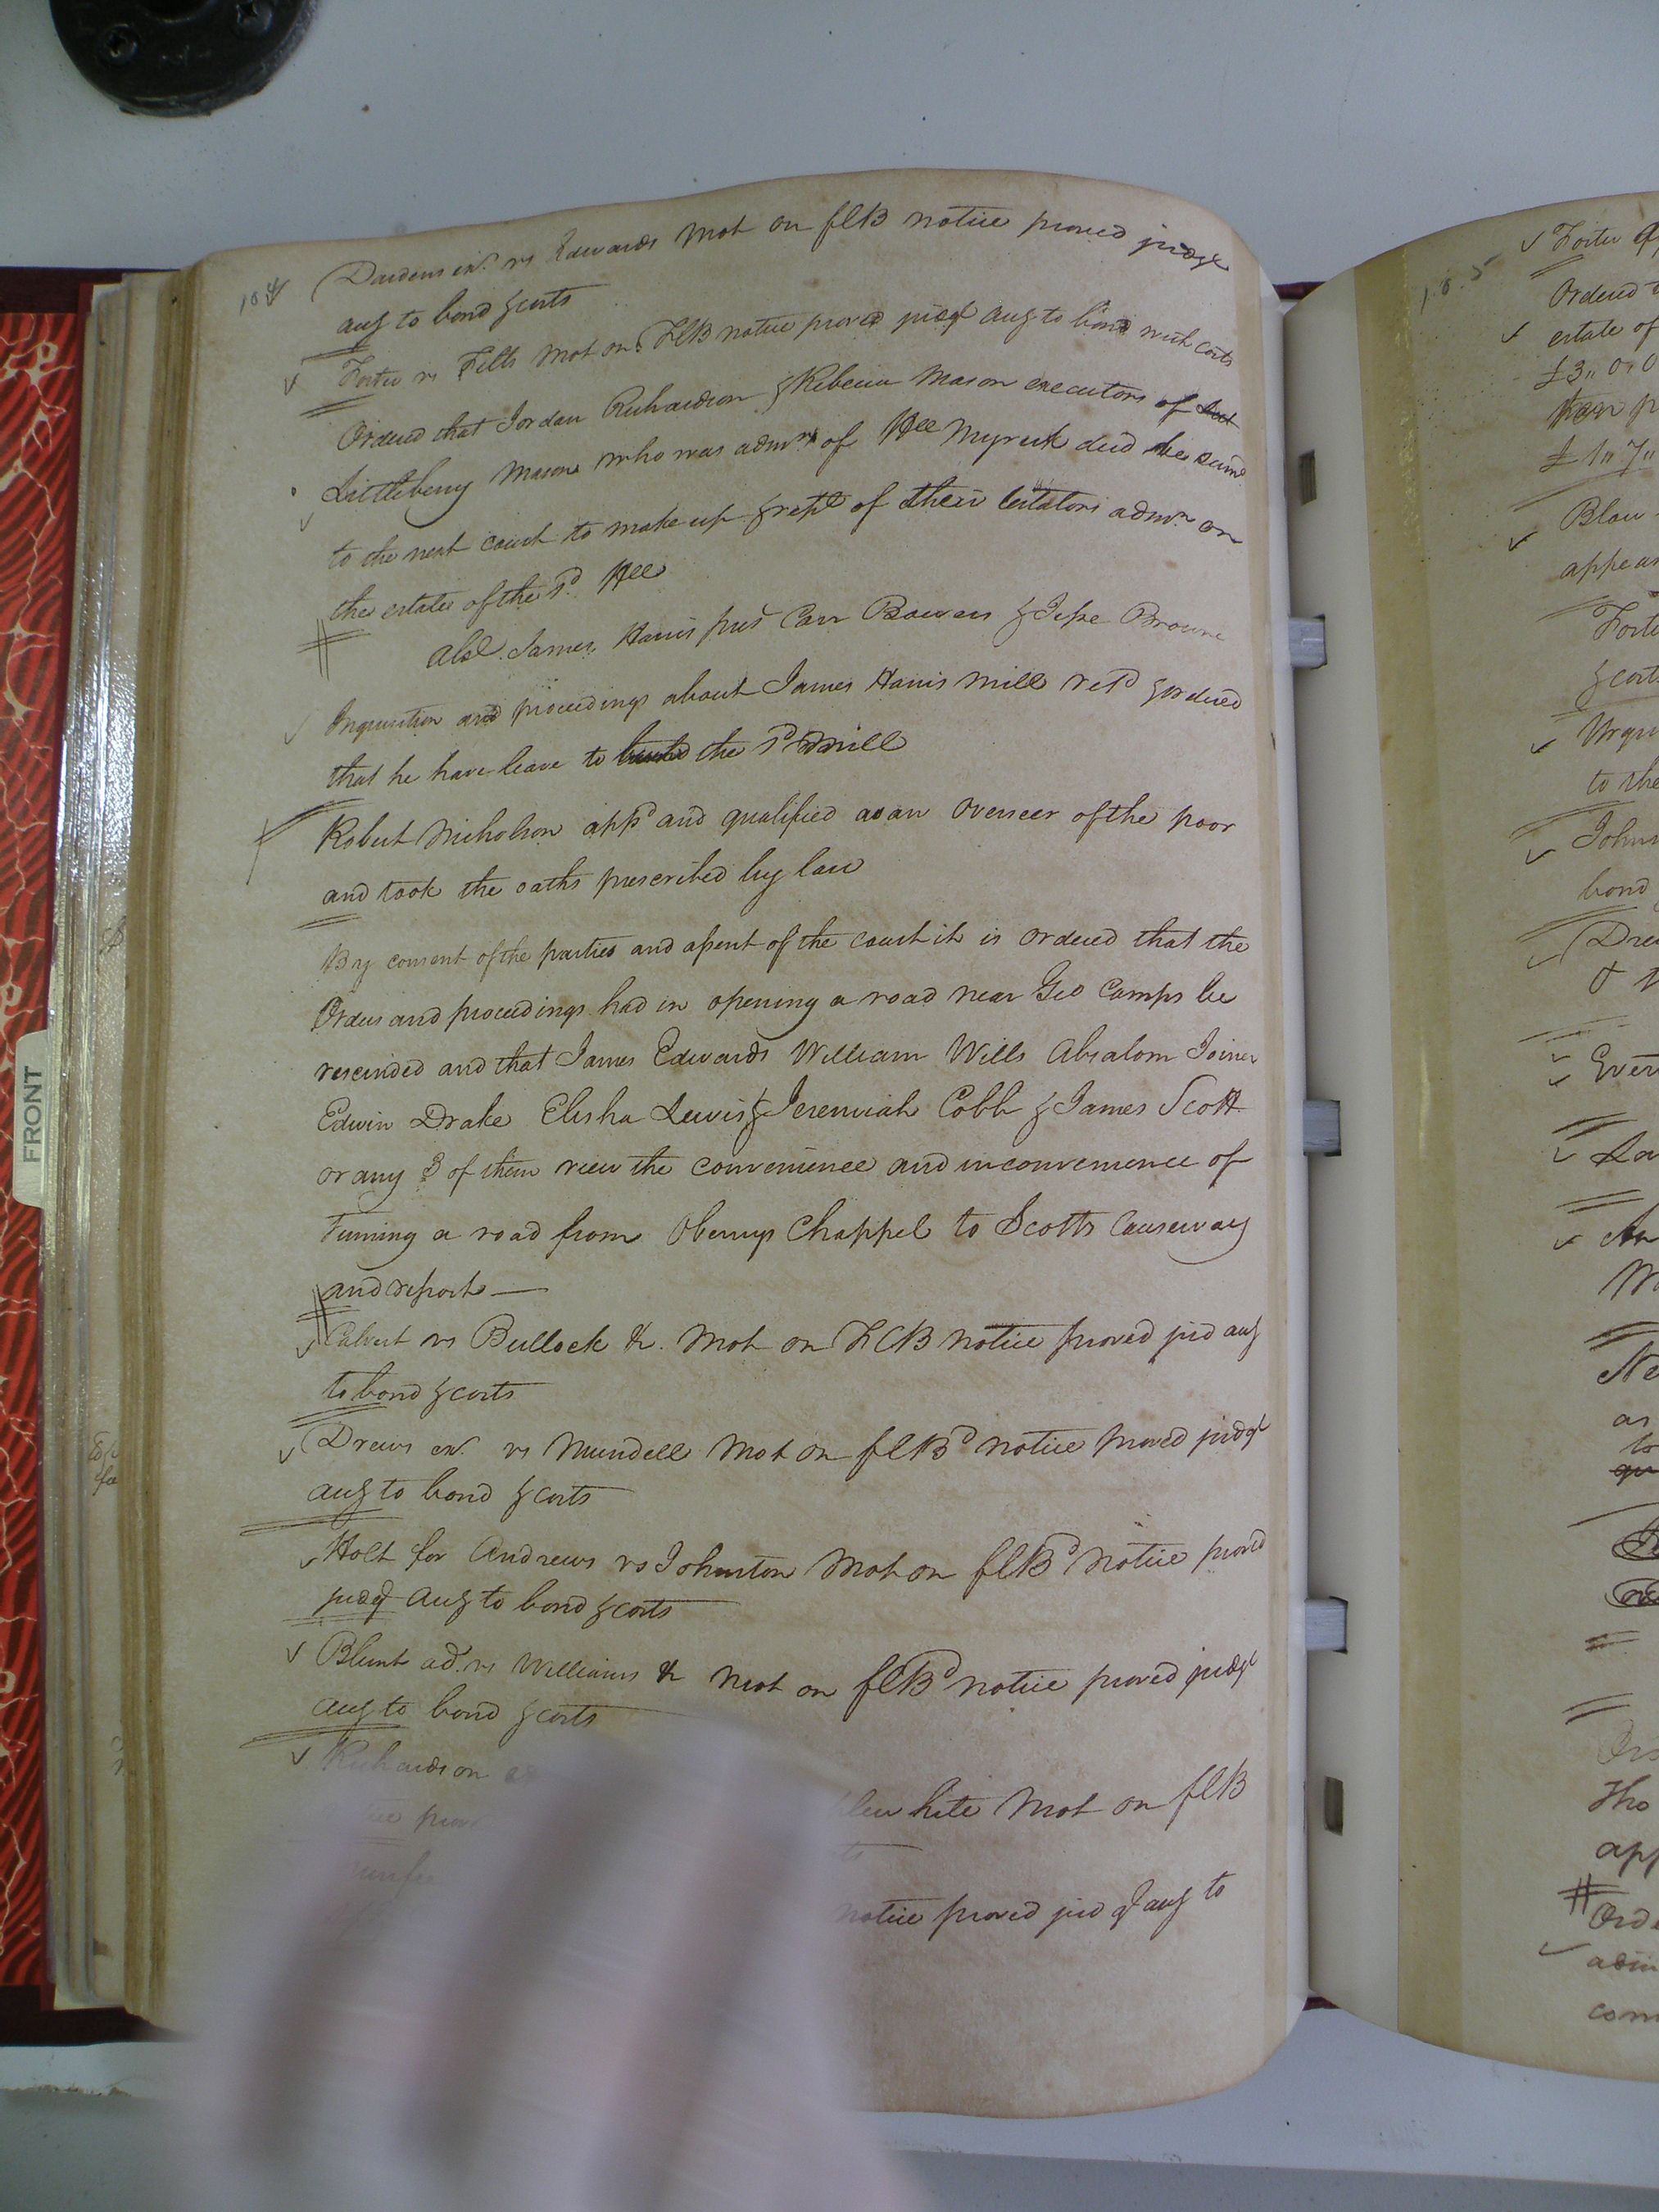 104
Dardens exr. vs Edwards Mot on flB notice proved judgt
aug to bond & costs
Foster vs Felts Mot on FlB notice proved judgt aug to bond with costs
Ordered that Jordan Richardson & Rebecca Mason executors of
Littleberry Mason who was admr. of Wee Myrick decd be sumd
to the next court to make up & rept of their testators admn. on
the estate of the sd. Wee
Abst. James Harris prest Carr Bowers & Jesse Browne
Inquisition and proceedings about James Harris mill retd & ordered
that he have leave to the sd mill
Robert Nicholson appd and qualified as an Overseer of the poor
and took the oaths prescribed by law
By consent of the parties and assent of the court it is ordered that the
Orders and proceedings had in opening a road near Geo Camps be
rescinded and that James Edwards William Wills Absalom Joiner
Edwin Drake Elisha Lewis & Jeremiah Cobb & James Scott
or any 3 of them view the convenience and inconvenience of
Turning a road from Oberrys Chappel to Scotts Causeway
and report —
Calvert vs Bullock &. Mot on FlB notice proved jud aug
to bond & costs
Drews exr. vs Mundell Mot on flBd notice proved judgt
aug to bond & costs
Holt for Andrews vs Johnston Mot on flBd notice proved
judgt aug to bond & costs
Blunt ad. vs Williams & Mot on flBd notice proved judgt
aug to bond & costs
Richardson hite Mot on flB
notice proved judgt aug to
FRONT
10.5
Foster
Ordered
estate of
£3,, 0,, 0
£1,, 7,,
Blow
appear
& costs
to the
bond
as
to
Tho
app